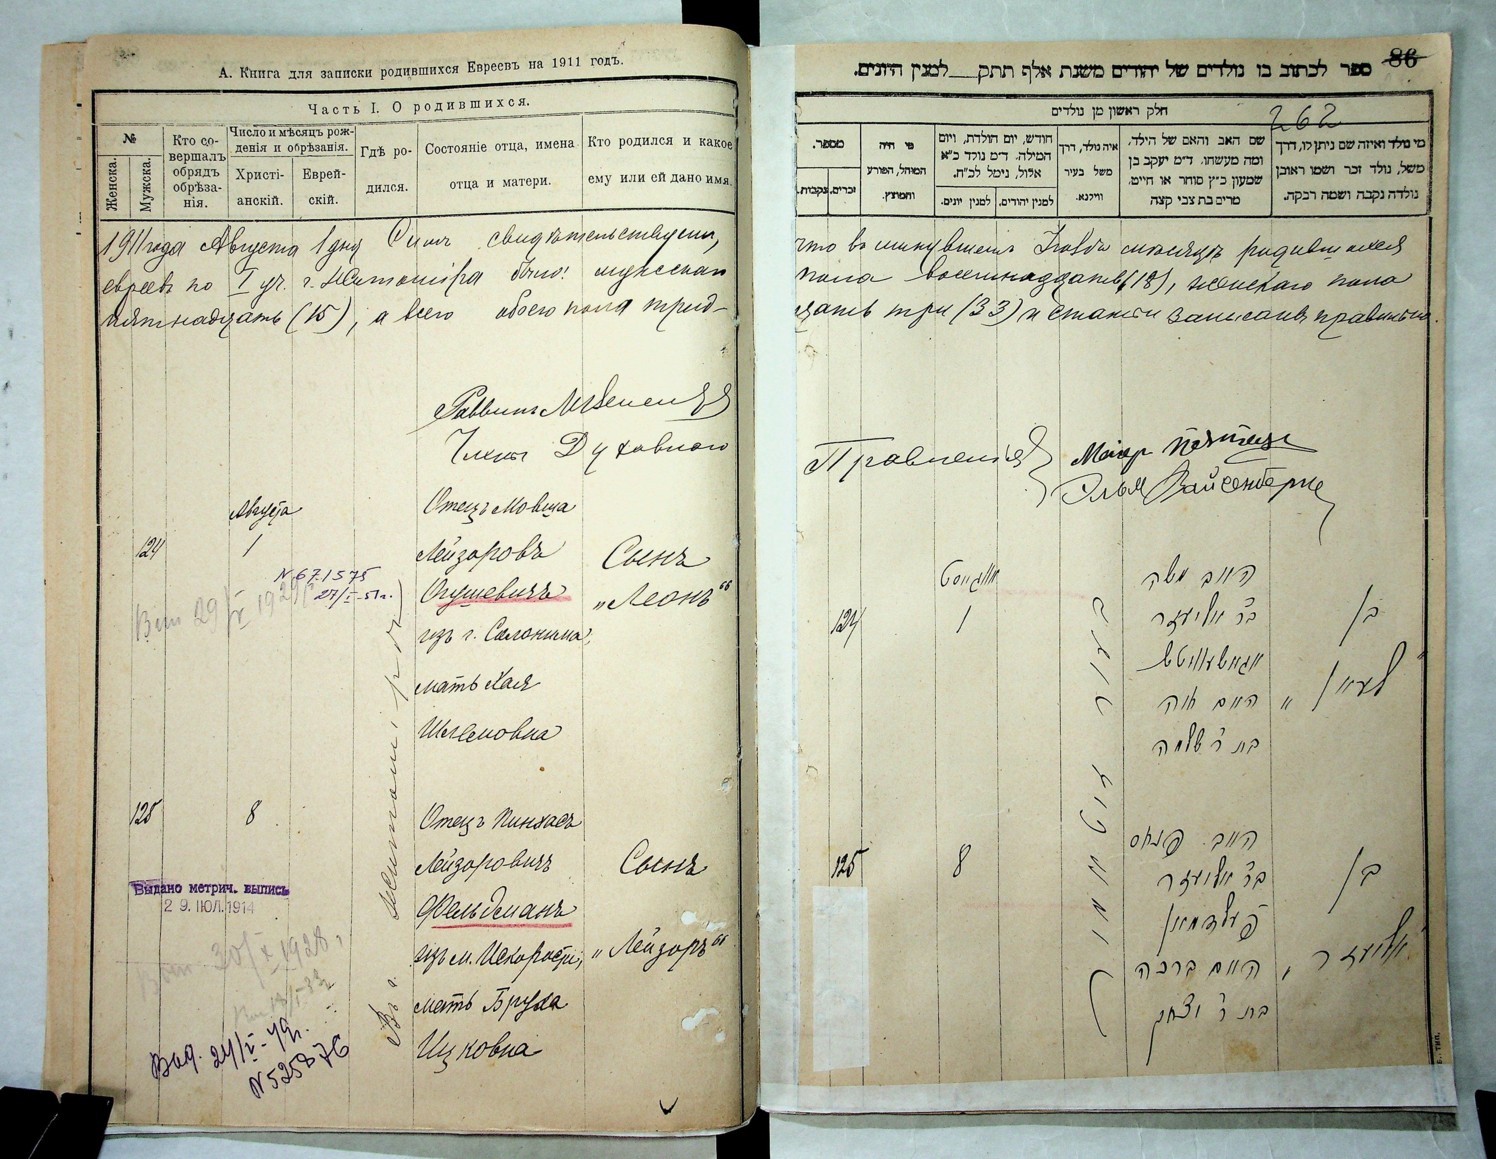 А. Книга для записки родившихся Евреевъ на 1911 годъ.
Часть I. О родившихся.
№
Женска.
Мужска.
Кто совершалъ обрядъ обрѣзанія.
Число и мѣсяцъ рожденія и обрѣзанія.
Христіанскій.
Еврейскій.
Гдѣ родился.
Состояніе отца, имена отца и матери.
Кто родился и какое ему или ей дано имя.
1911 года Августа 1 дня Симъ свидѣтельствуемъ,
евреевъ по I уч. г. Житоміра было: мужескаго
пятнадцать (15), а всего обоего пола трид-
Раввинъ
Члены Духовнаго
Августа
124
1
Отецъ Мовша
Лейзоровъ
Огушевичъ
изъ г. Слонима,
мать Хая
Шлемовна
Сынъ
„Леонъ“
N 671575
27/I-51г.
Въ г. Житомірѣ
125
8
Отецъ Пинхасъ
Лейзоровичъ
Фельдманъ
изъ м. Искорости,
мать Бруха
Ицковна
Сынъ
„Лейзоръ“
Выдано метрич. выпись
29. ІЮЛ. 1914
30/X 1928
Выд. 24/V-49г.
N 525876
86
ספר לכתוב בו נולדים של יהודים משנת אלף תתק__למנין היונים.
262
חלק ראשון מן נולדים
מספר.
זכרים.
נקבות.
מי היה המוהל, הפורע והמוצץ.
חודש, יום הולדת, ויום המילה. ד״מ נולד כ״א אלול, נימל לכ״ח.
למנין יונים.
למנין יהודים.
איה נולד, דרך משל בעיר ווילנא.
שם האב והאם של הילד, ומה מעשהו. ד״מ יעקב בן שמעון כ״ץ סוחר או חייט, מרים בת צבי קצה
מי נולד ואיזה שם ניתן לו, דרך משל, נולד זכר ושמו ראובן נולדה נקבה ושמה רבקה.
что въ минувшемъ Іюлѣ мѣсяцѣ родившихся
пола восемнадцать (18), женскаго пола
цать три (33) и статьи записаны правильно.
Правленія
Элья Вайсенбергъ
124
אויגוסט
1
האב משה
בר אליעזר
האם חיה
בת ר׳ שלמה
בן
„לעאן“
בעיר זיטאמיר
125
8
האב פנחס
בר אליעזר
פעלדמאן
האם ברכה
בת ר׳ יצחק
בן
„אליעזר“